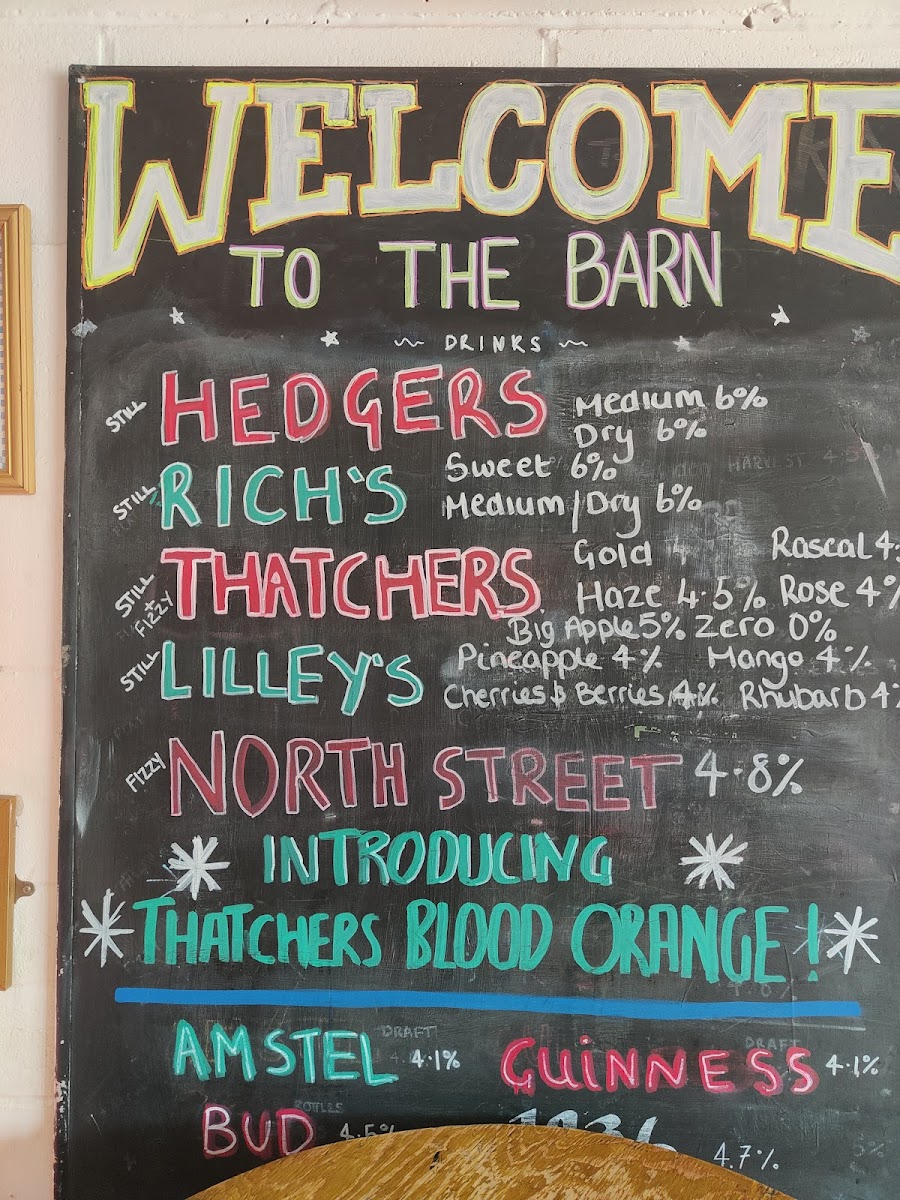 WELCOME
TO THE BARN
DRINKS
STILL HEDGERS Medium 6%
Dry 6%
STILL RICH'S Sweet 6%
Medium/Dry 6%
STILL + FIZZY THATCHERS Gold 4 Rascal 4.
Haze 4.5% Rose 4%
Big Apple 5% Zero 0%
STILL LILLEY'S Pineapple 4% Mango 4%
Cherries & Berries 4% Rhubarb 4%
FIZZY NORTH STREET 4.8%
INTRODUCING
THATCHERS BLOOD ORANGE!
AMSTEL DRAFT 4.1% GUINNESS DRAFT 4.1%
BUD BOTTLES 4.5% 1936 4.7%